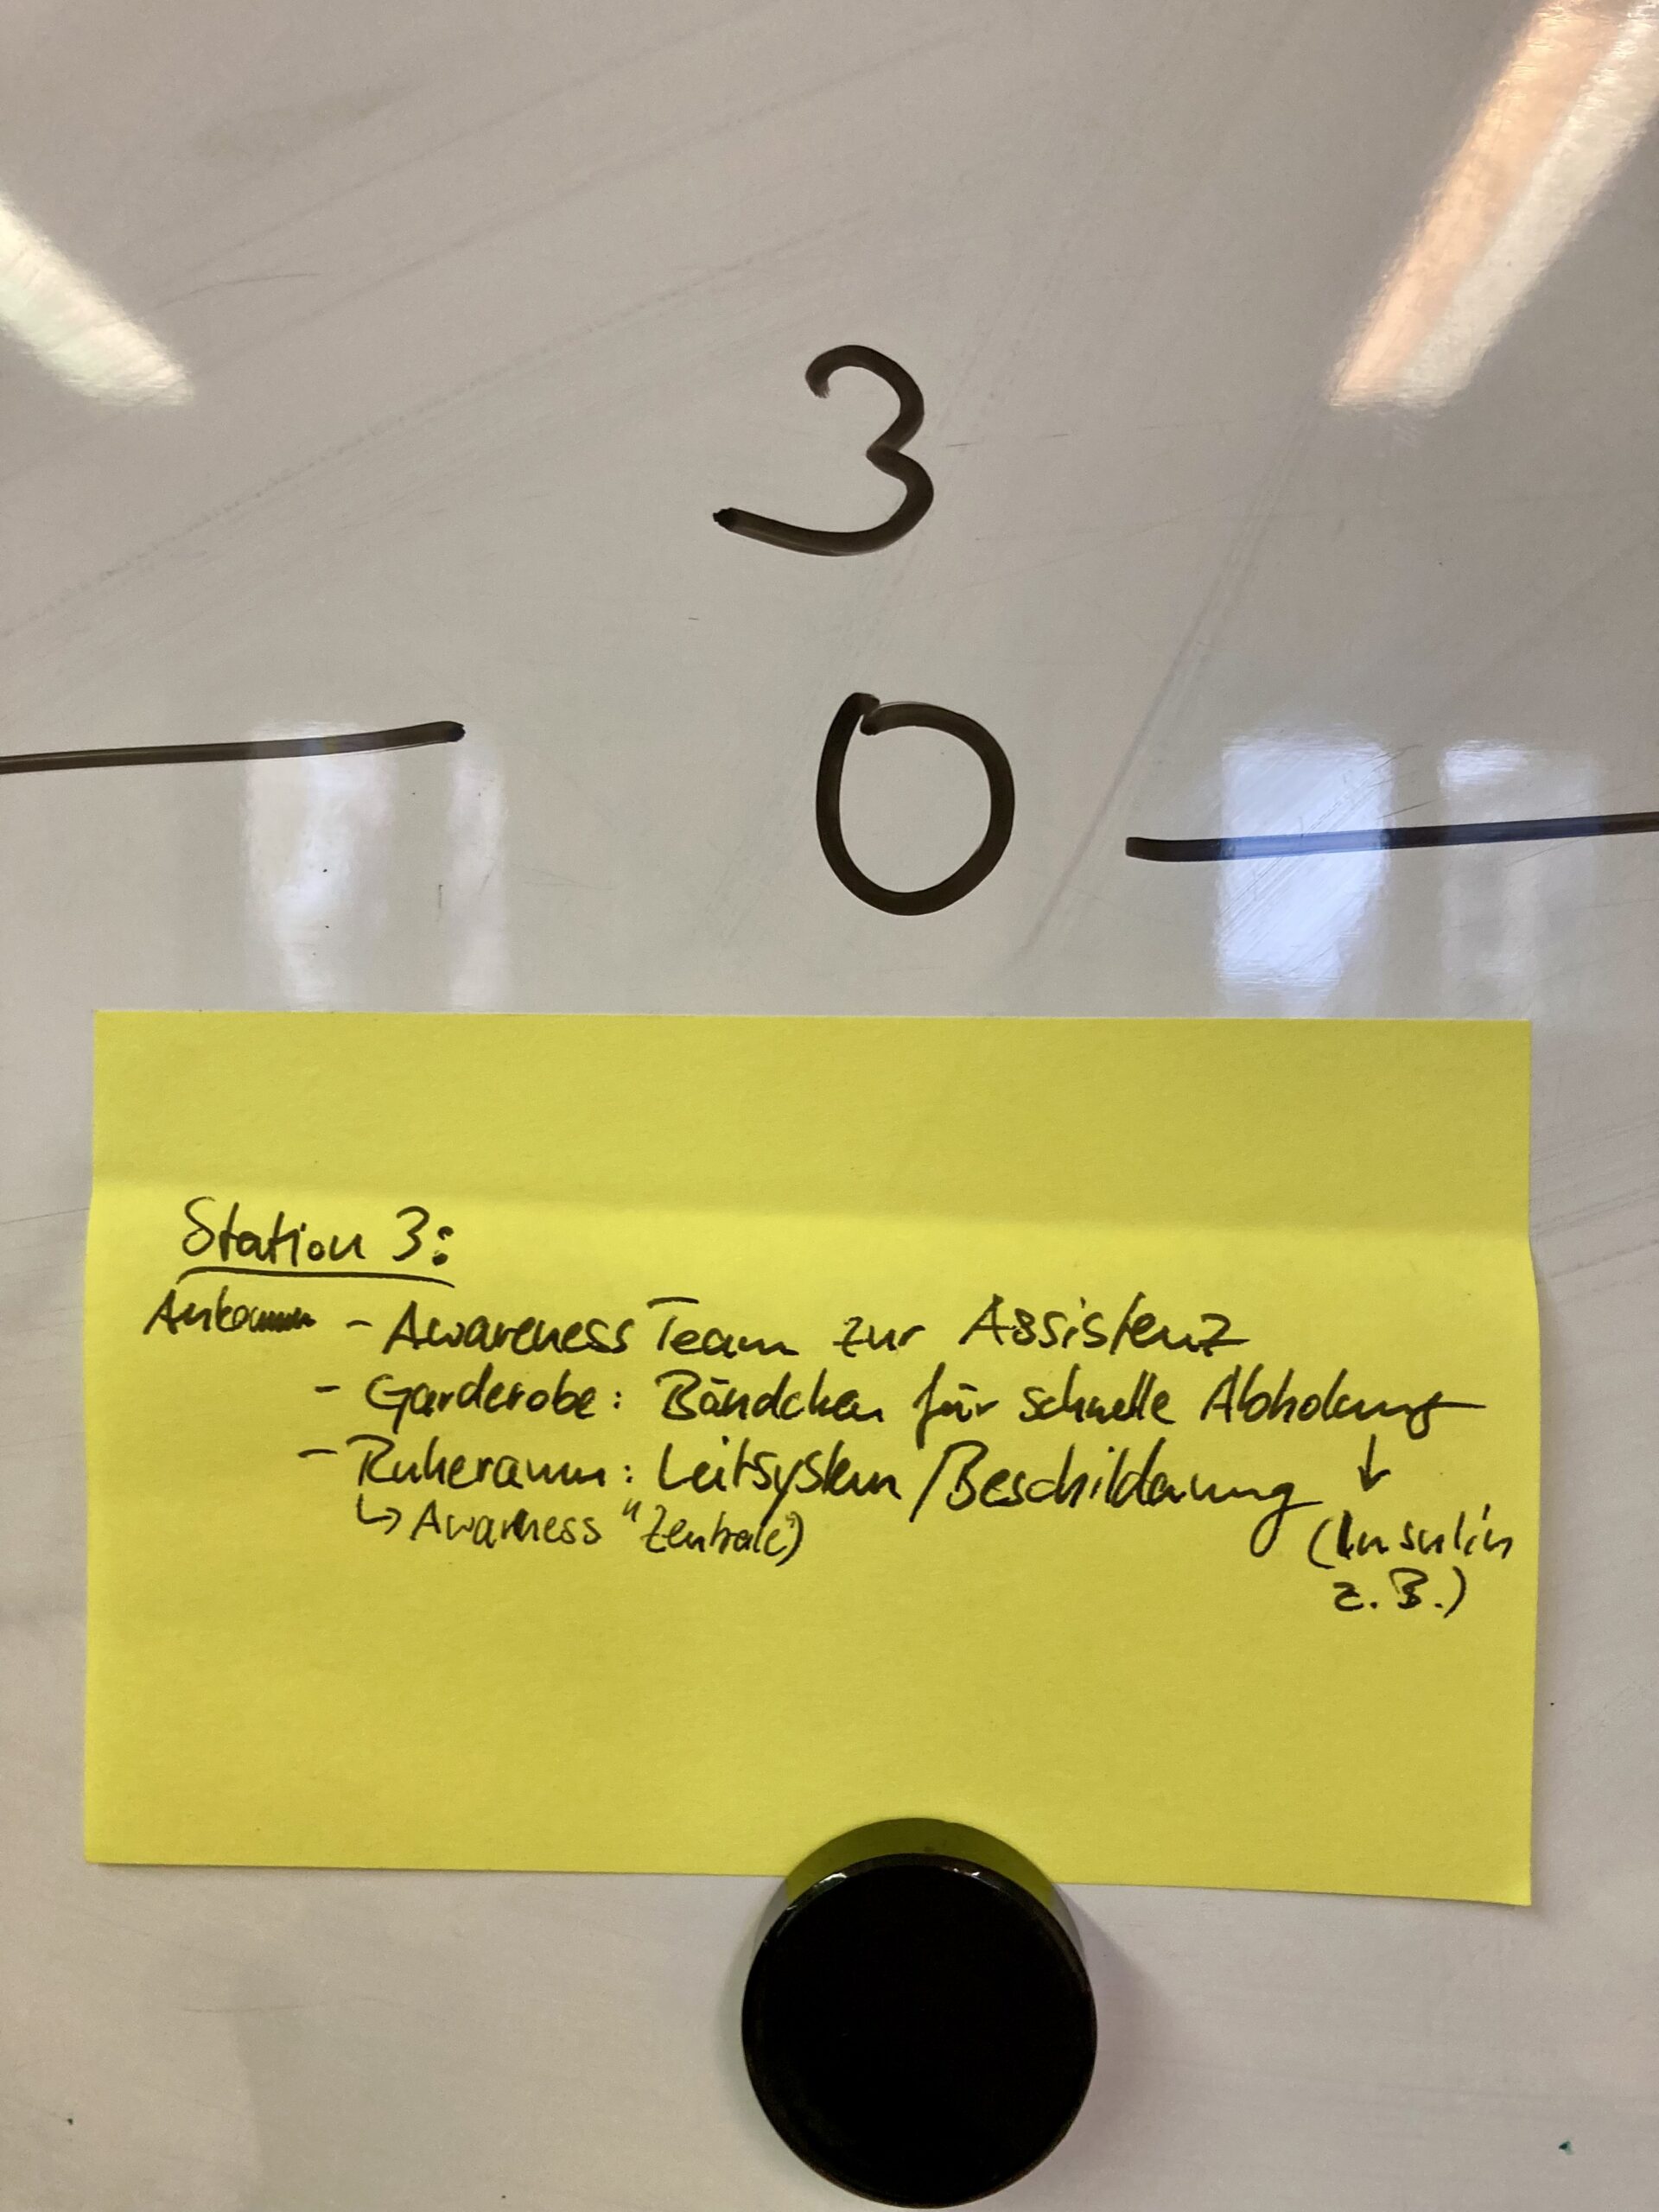 3
0
Station 3:
Ankommen - Awareness Team zur Assistenz
- Garderobe: Bändchen für schnelle Abholung
- Ruheraum: Leitsystem/Beschilderung ↓
↳ Awareness "Zentrale") (Insulin
z.B.)